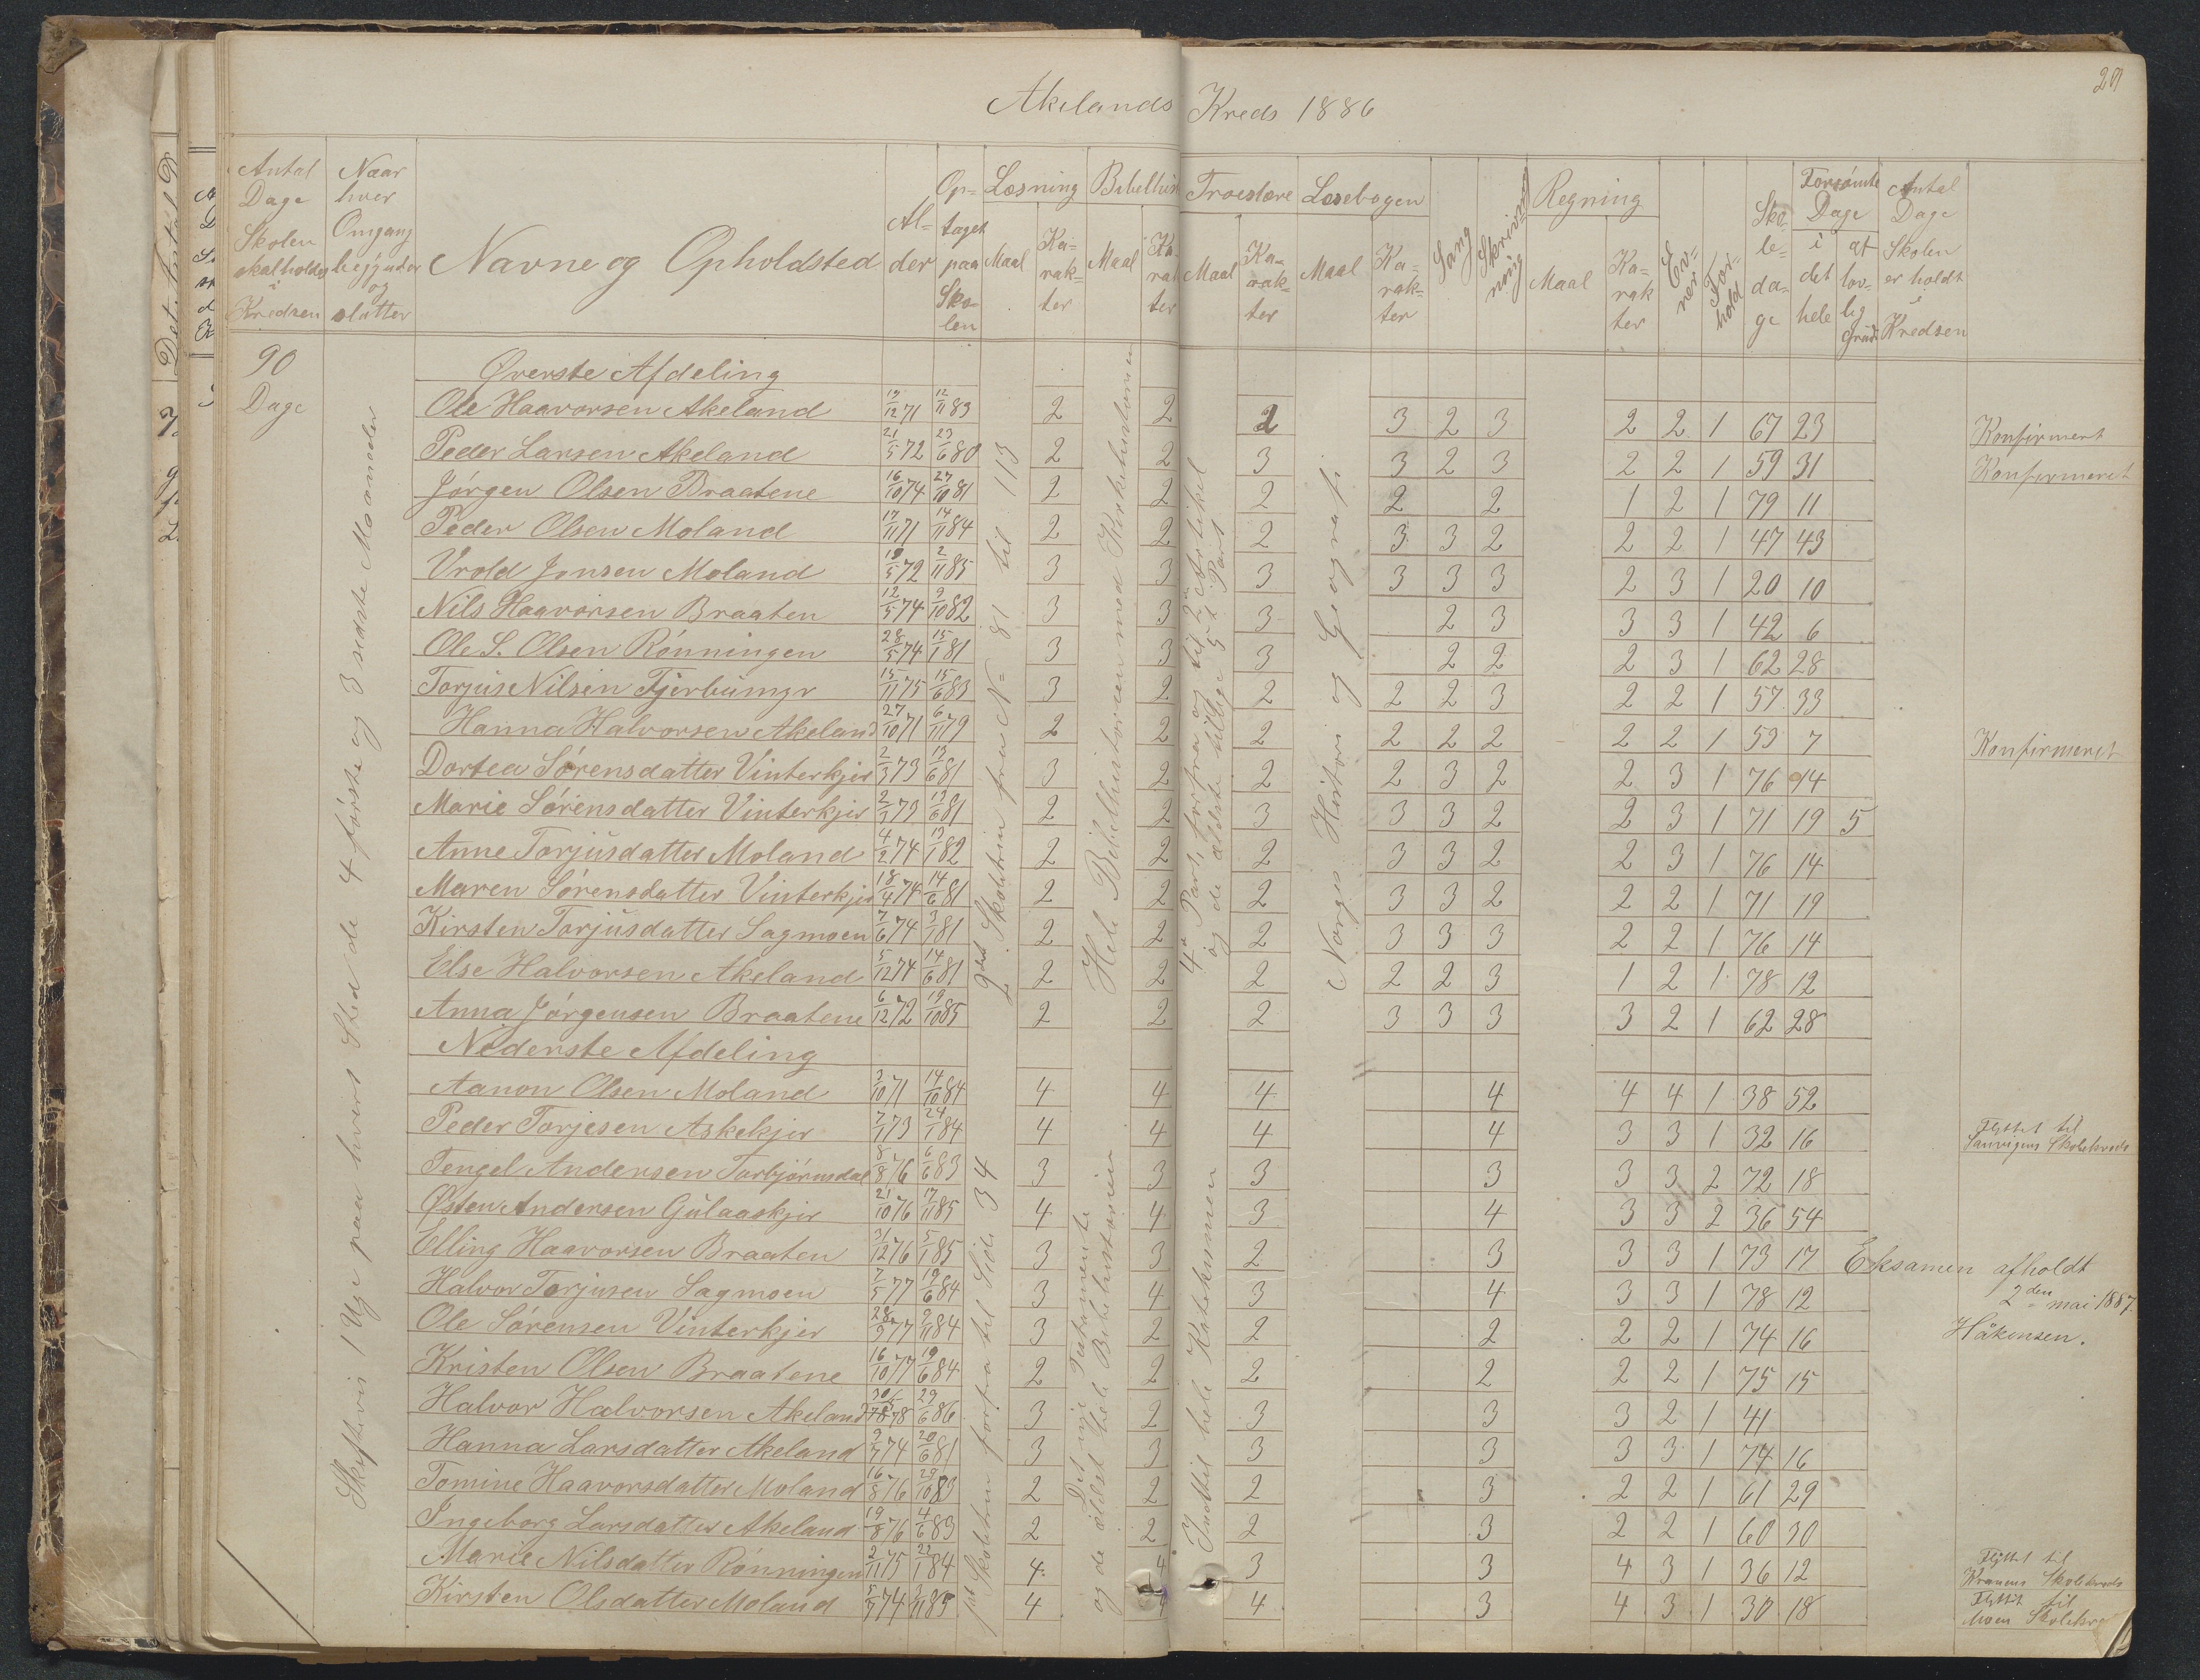 Akelands Kreds 1886
29
Antal Dage Skolen skal holdes i Kredsen
Naar hver Omgang begynder og slutter
Navne og Opholdsted
Alder
Optaget paa Skolen
Læsning Maal Karakter
Bibelhist Maal Karakter
Troeslære Maal Karakter
Læsebogen Maal Karakter
Sang
Skrivning
Regning Maal Karakter
Evner
Forhold
Skoledage
Forsømte Dage i det hele af lovlig Grund
Antal Dage Skolen er holdt i Kredsen
90 Dage
Skiftevis 1 Uge paa hvert Sted de 4 første og 3 sidste Maaneder
Øverste Afdeling
2det Skoletrin fra N= 81 til 113
Hele Bibelhistorien med Kirkehistorien
4de Part forfra og til 2den Artikel
og de ældste tillige 5te Part
Norges Histori og Geografi
Ole Haavorsen Akeland 19/12 71 12/11 83 2 2 2 3 2 3 2 2 1 67 23 Konfirmert
Peder Larsen Akeland 21/5 72 23/6 80 2 2 3 3 2 3 2 2 1 59 31 Konfirmeret
Jørgen Olsen Braatene 16/10 74 27/10 81 2 2 2 2 2 1 2 1 79 11
Peder Olsen Moland 17/11 71 14/11 84 2 2 2 3 3 2 2 2 1 47 43
Vrold Jonsen Moland 19/5 72 2/11 85 3 3 3 3 3 3 2 3 1 20 10
Nils Haavorsen Braaten 12/5 74 9/10 82 3 3 3 2 3 3 3 1 42 6
Ole S. Olsen Rønningen 28/5 74 15/1 81 3 3 3 2 2 2 3 1 62 28
Torjus Nilsen Tjerbumyr 15/11 75 15/6 83 3 2 2 2 2 3 2 2 1 57 33
Hanna Halvorsen Akeland 27/10 71 6/11 79 2 2 2 2 2 2 2 2 1 53 7 Konfirmeret
Dortea Sørensdatter Vinterkjer 2/3 73 13/6 81 3 2 2 2 3 2 2 3 1 76 14
Marie Sørensdatter Vinterkjer 2/3 73 13/6 81 2 2 3 3 3 2 2 3 1 71 19 5
Anne Torjusdatter Moland 4/2 74 13/1 82 2 2 2 3 3 2 2 3 1 76 14
Maren Sørensdatter Vinterkjer 18/4 74 14/6 81 2 2 2 3 3 2 2 2 1 71 19
Kirsten Torjusdatter Sagmoen 7/6 74 3/1 81 2 2 2 3 3 3 2 2 1 76 14
Else Halvorsen Akeland 5/12 74 14/6 81 2 2 2 2 2 3 1 2 1 78 12
Anna Jørgensen Braatene 6/12 72 19/10 85 2 2 2 3 3 3 3 2 1 62 28
Nederste Afdeling
1st Skoletrin forfra til Side 34
Det nye Testamente
og de ældst hele Bibelhistorien
Indtil hele Katekismen
Aanon Olsen Moland 3/10 71 14/10 84 4 4 4 4 4 4 1 38 52
Peder Torjesen Askekjer 7/1 73 24/1 84 4 4 4 4 3 3 1 32 16 Flyttet til Sauvigens Skolekreds
Tengel Andersen Torbjørnsdal 8/8 76 6/6 83 3 3 3 3 3 3 2 72 18
Østen Andersen Gulaaskjer 21/10 76 17/11 85 4 4 3 4 3 3 2 36 54
Elling Haavorsen Braaten 31/12 76 5/1 85 3 3 2 3 3 3 1 73 17
Eksamen afholdt
2den mai 1887.
Håkensen.
Halvor Torjusen Sagmoen 7/5 77 19/6 84 3 4 3 4 3 3 1 78 12
Ole Sørensen Vinterkjer 28/3 77 9/11 84 3 2 2 2 2 2 1 74 16
Kristen Olsen Braatene 16/10 77 19/6 84 2 2 2 2 2 2 1 75 15
Halvor Halvorsen Akeland 78 29/6 86 3 2 3 3 3 2 1 41
Hanna Larsdatter Akeland 9/7 74 20/6 81 3 3 3 3 3 3 1 74 16
Tomine Haavorsdatter Moland 16/8 76 29/10 83 2 2 2 3 2 2 1 61 29
Ingeborg Larsdatter Akeland 19/8 76 4/6 83 2 2 2 3 2 2 1 60 30
Marie Nilsdatter Rønningen 2/11 75 22/1 84 4 4 3 3 4 3 1 36 12 Flyttet til Kranens Skolekreds
Kirsten Olsdatter Moland 5/7 74 3/11 85 4 4 3 4 3 1 30 18 Flyttet til Moen Skolekre